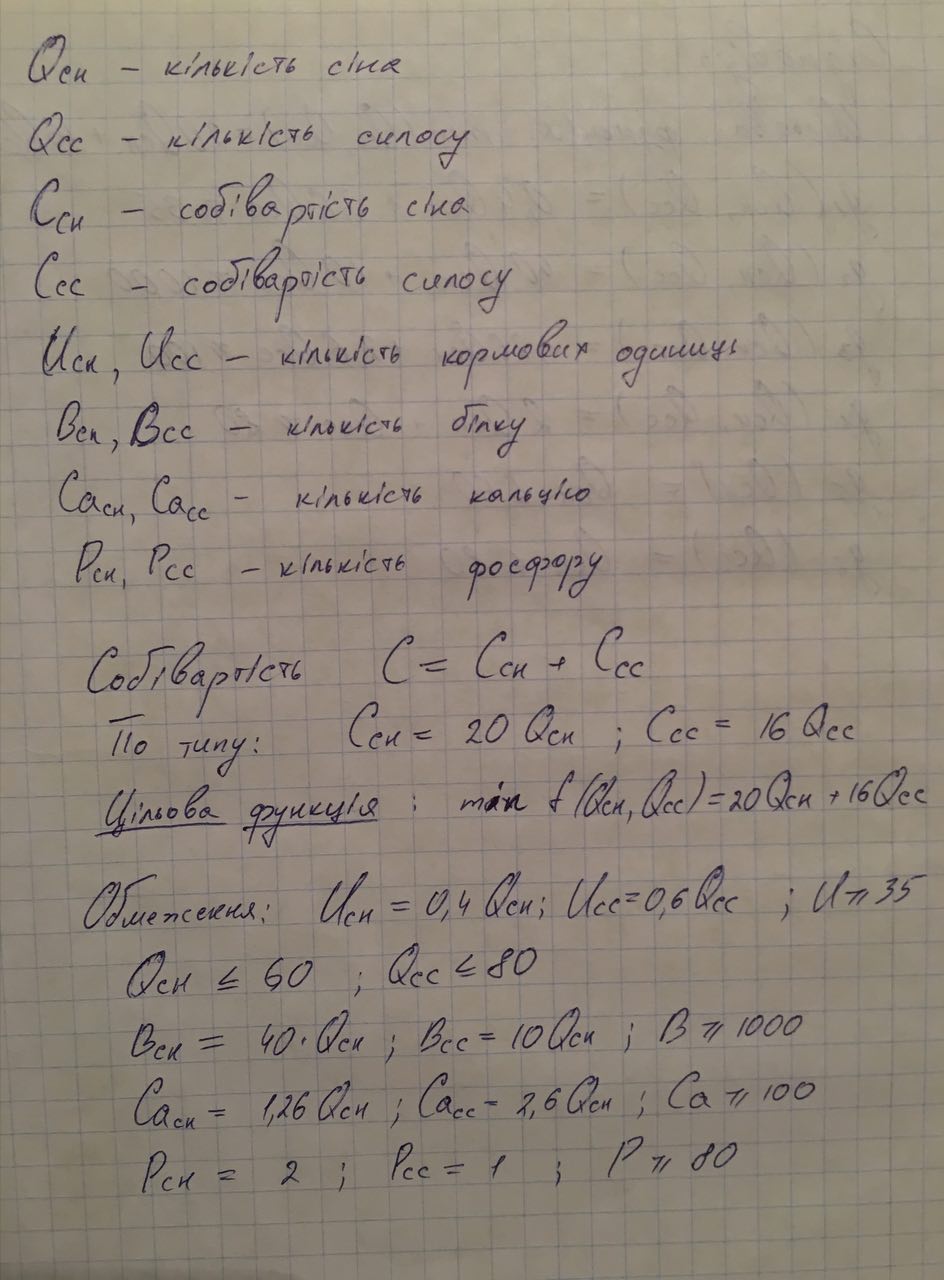 Qсн – кількість сіна
Qсс – кількість силосу
Ссн – собівартість сіна
Ссс – собівартість силосу
Исн, Исс – кількість кормових одиниць
Всн, Всс – кількість білку
Сасн, Сасс – кількість кальцію
Рсн, Рсс – кількість фосфору
Собівартість С = Ссн + Ссс
По типу: Ссн = 20 Qсн ; Ссс = 16 Qсс
Цільова функція : min f (Qсн, Qсс) = 20Qсн + 16Qсс
Обмеження: Исн = 0,4 Qсн; Исс = 0,6 Qсс ; И ≥ 35
Qсн ≤ 60 ; Qсс ≤ 80
Всн = 40·Qсн ; Всс = 10Qсн ; В ≥ 1000
Сасн = 1,26 Qсн ; Сасс = 2,6 Qсн ; Са ≥ 100
Рсн = 2 ; Рсс = 1 ; Р ≥ 80